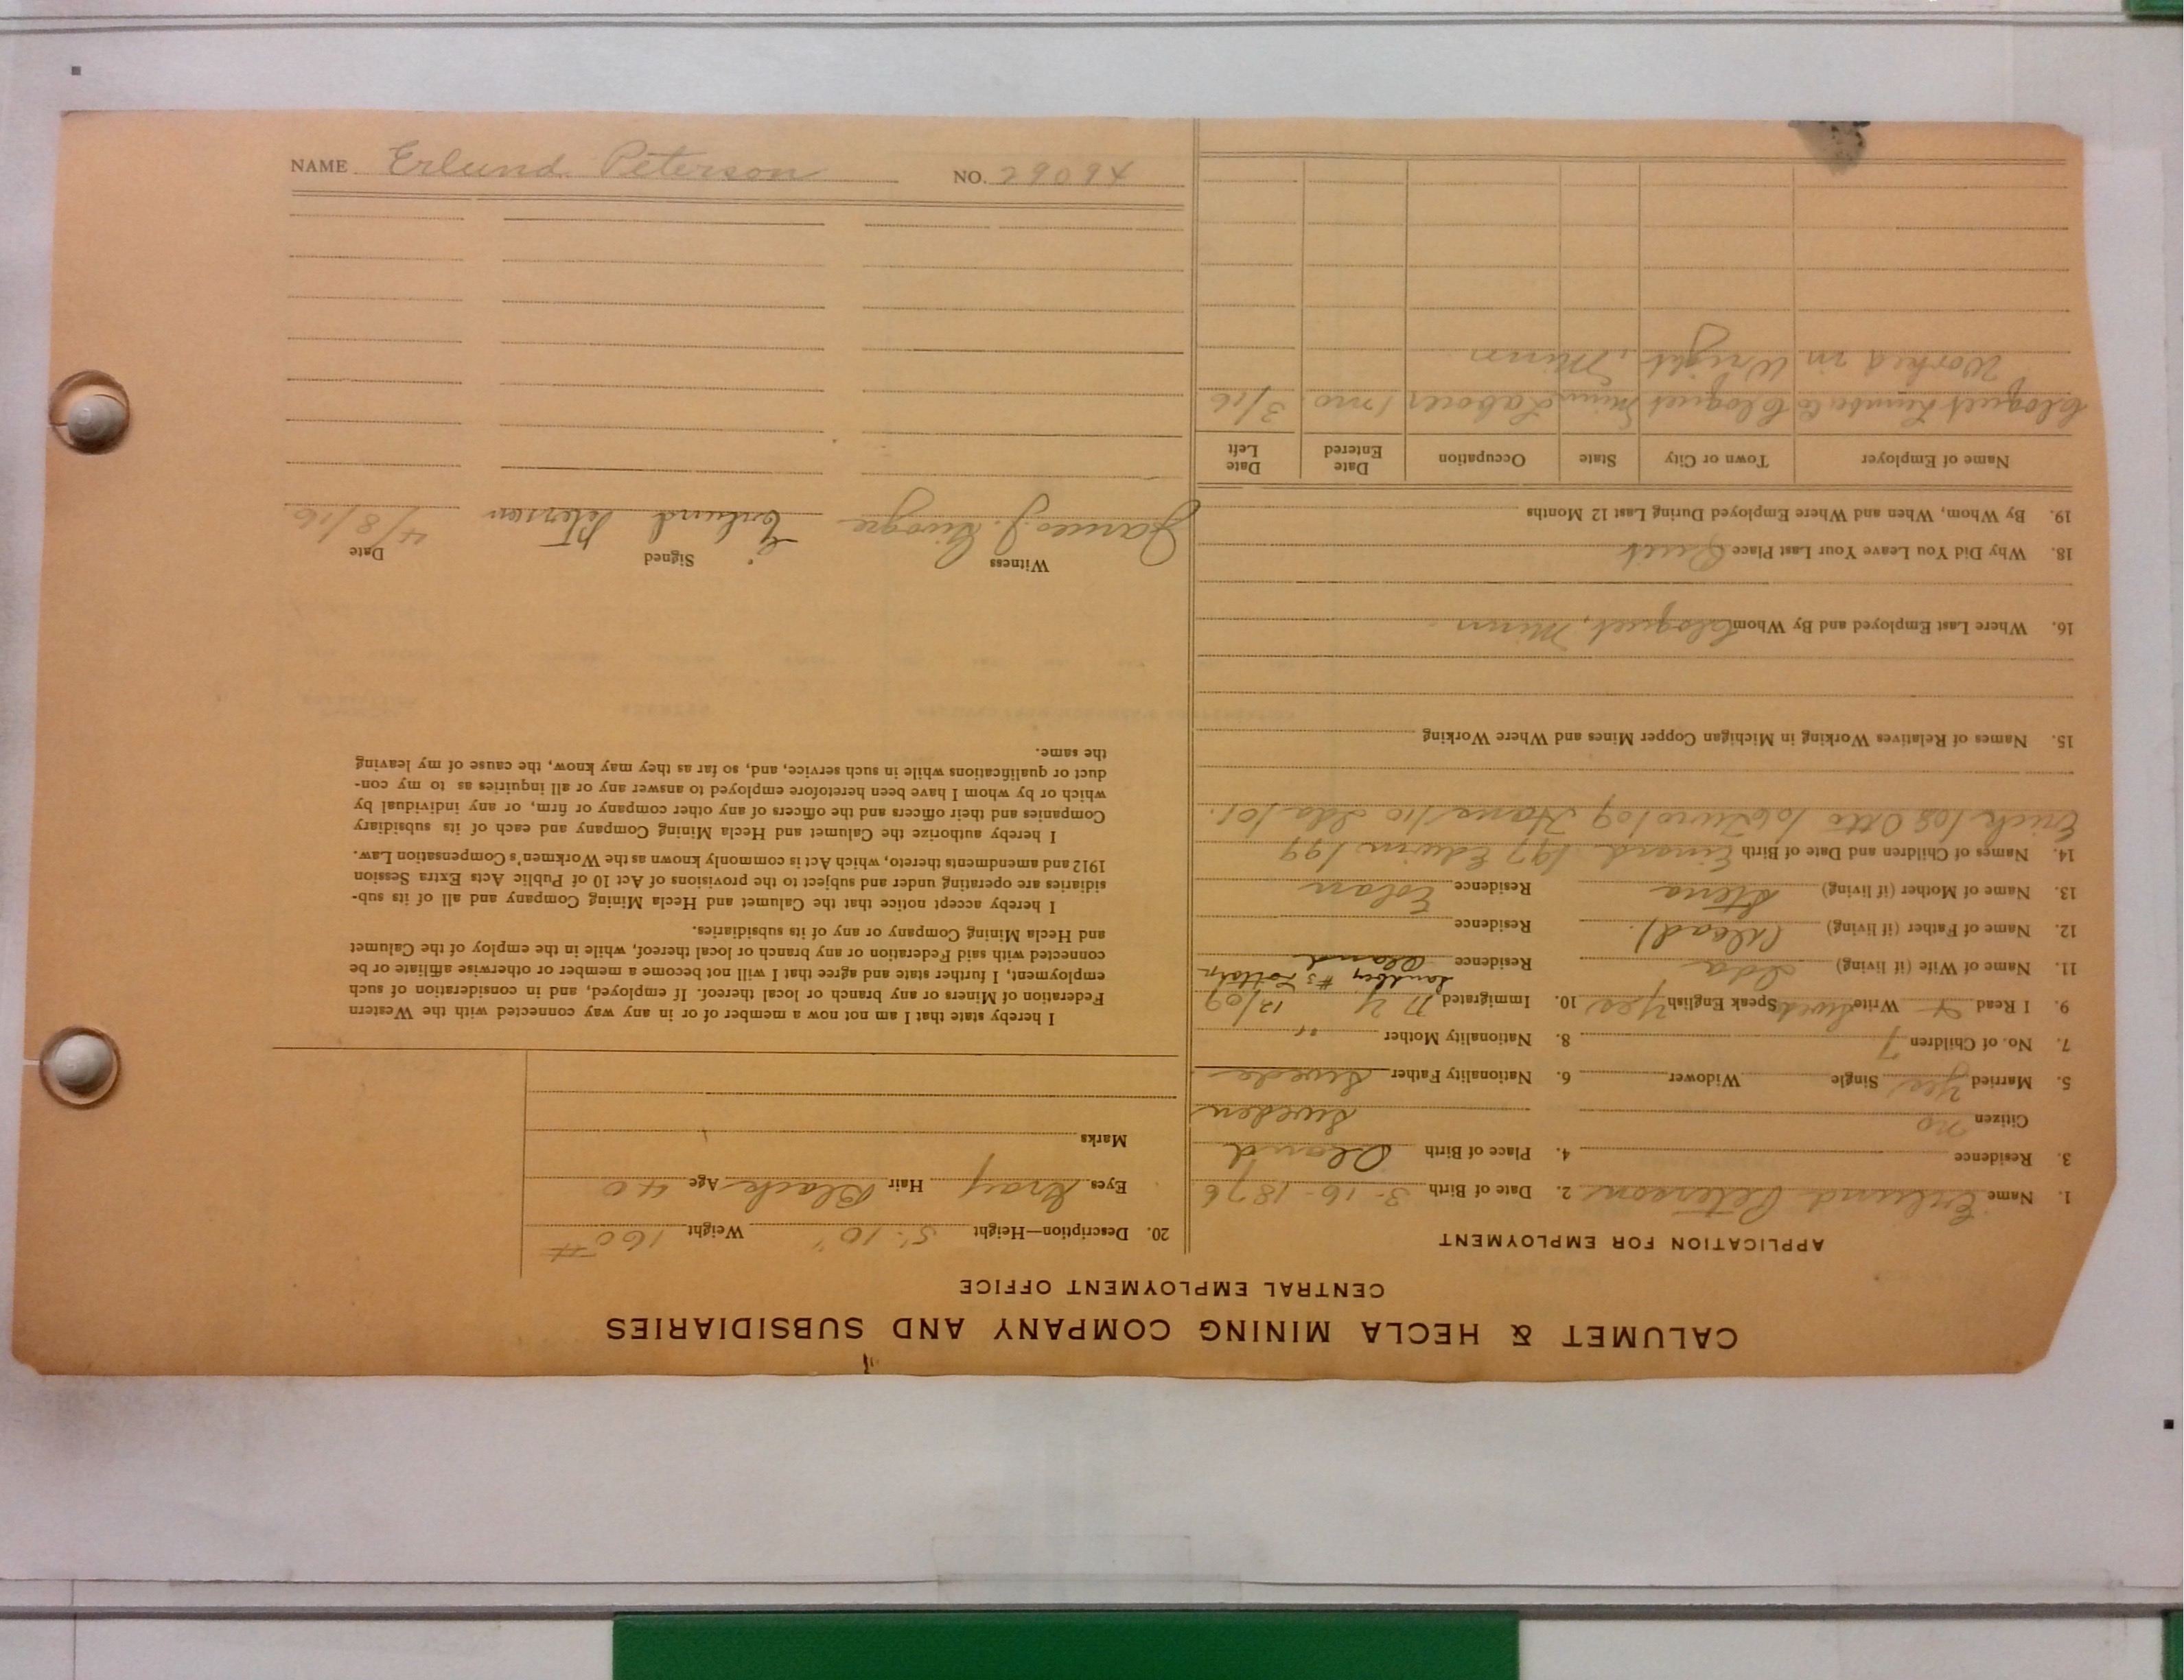 CALUMET & HECLA MINING COMPANY AND SUBSIDIARIES
CENTRAL EMPLOYMENT OFFICE
APPLICATION FOR EMPLOYMENT
1. Name Erlund Peterson 2. Date of Birth 3-16-1876
3. Residence 4. Place of Birth Oland
Citizen no Sweden
5. Married yes Single Widower 6. Nationality Father Swede
7. No. of Children 7 8. Nationality Mother "
9. I Read & Write Swed Speak English yes 10. Immigrated N Y 12/09
Sandby #3
11. Name of Wife (if living) Ida Residence Oland
12. Name of Father (if living) (dead) Residence
13. Name of Mother (if living) Stena Residence
14. Names of Children and Date of Birth Einard 197 Edwin 199
Erick 108 Otto 106 109 Hans 110 Ida 101.
15. Names of Relatives Working in Michigan Copper Mines and Where Working
16. Where Last Employed and By Whom Cloquet, Minn
18. Why Did You Leave Your Last Place Quit
19. By Whom, When and Where Employed During Last 12 Months
Name of Employer Town or City State Occupation Date Entered Date Left
Cloquet Lumber Co Cloquet Minn Laborer 1 mo 3/16
Worked in Wright, Minn
20. Description—Height 5' 10" Weight 160 #
Eyes Gray Hair Black Age 40
Marks
I hereby state that I am not now a member of or in any way connected with the Western
Federation of Miners or any branch or local thereof. If employed, and in consideration of such
employment, I further state and agree that I will not become a member or otherwise affiliate or be
connected with said Federation or any branch or local thereof, while in the employ of the Calumet
and Hecla Mining Company or any of its subsidiaries.
I hereby accept notice that the Calumet and Hecla Mining Company and all of its sub-
sidiaries are operating under and subject to the provisions of Act 10 of Public Acts Extra Session
1912 and amendments thereto, which Act is commonly known as the Workmen's Compensation Law.
I hereby authorize the Calumet and Hecla Mining Company and each of its subsidiary
Companies and their officers and the officers of any other company or firm, or any individual by
which or by whom I have been heretofore employed to answer any or all inquiries as to my con-
duct or qualifications while in such service, and, so far as they may know, the cause of my leaving
the same.
Witness Signed Date
James J. Erlund Peterson 4/8/16
NAME Erlund Peterson NO. 29094